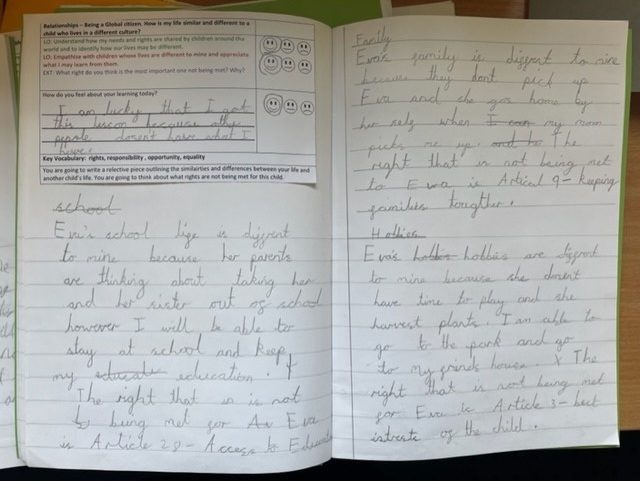 Relationships – Being a Global citizen. How is my life similar and different to a
child who lives in a different culture?
LO: Understand how my needs and rights are shared by children around the
world and to identify how our lives may be different.
LO: Empathise with children whose lives are different to mine and appreciate
what I may learn from them.
EXT: What right do you think is the most important one not being met? Why?
How do you feel about your learning today?
I am lucky that I got
this lesson because other
pepole dosen't have what I
have.
Key Vocabulary: rights, responsibility, opportunity, equality
You are going to write a relective piece outlining the similarities and differences between your life and
another child's life. You are going to think about what rights are not being met for this child.
school
Eva's school life is diffrent
to mine because her parents
are thinking about taking her
and her sister out of school
however I will be able to
stay at school and keep
my education.
The right that is not
being met for Eva
is Article 28 - Access to
Family
Eva's family is diffrent to mine
because they dont pick up
Eva and she gos home by
her self when my mom
picks me up. The
right that is not being met
to Eva is Artical 9 - keeping
families tougther.
Hobbies
Eva's hobbies are diffrent
to mine because she dosent
have time to play and she
harvest plants. I am able to
go to the park and go
to my friends house. The
right that is not being met
for Eva is Article 3 - best
intrests of the child.